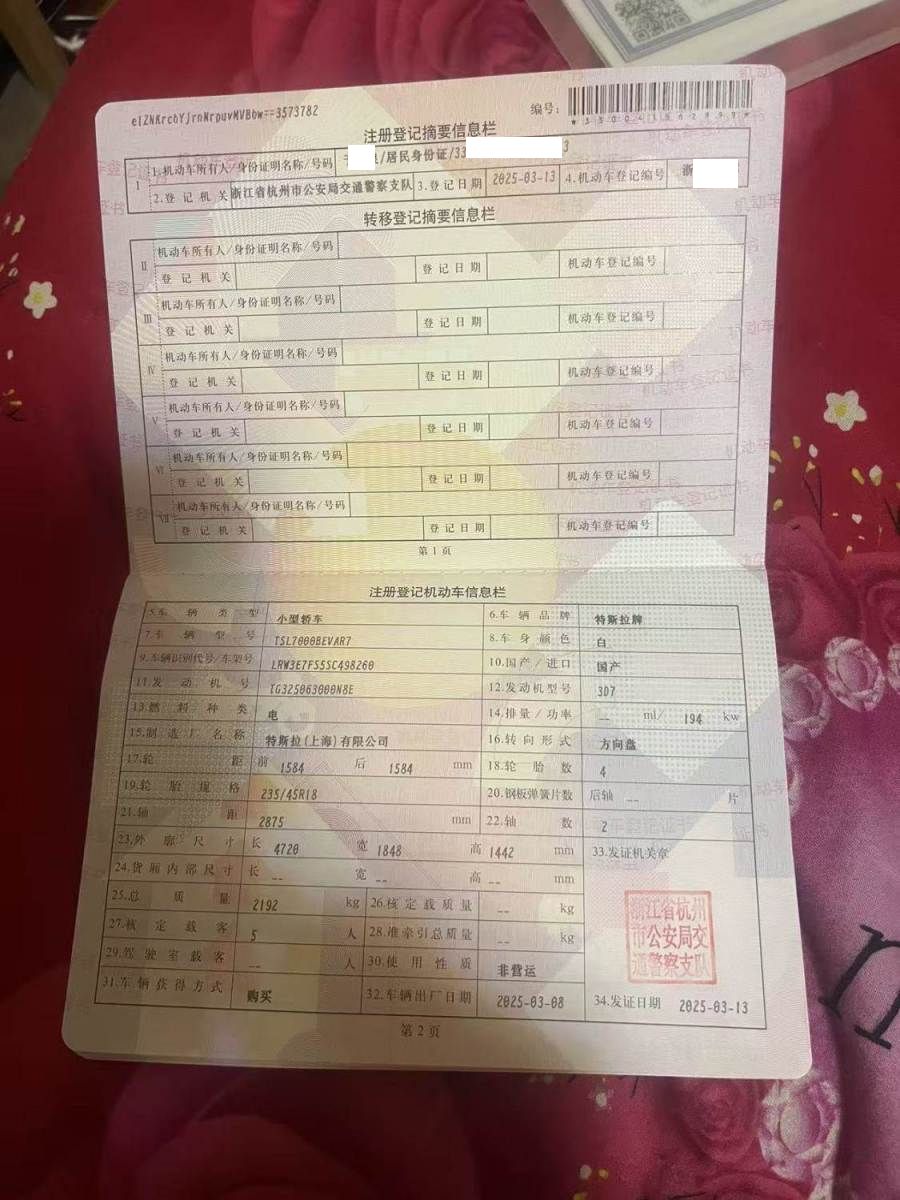 eIZNKrcoYJrnNrpuvMVBbw==3573782
编号:
注册登记摘要信息栏
I 1.机动车所有人/身份证明名称/号码 /居民身份证/33 3
2.登记机关 浙江省杭州市公安局交通警察支队 3.登记日期 2025-03-13 4.机动车登记编号 浙
转移登记摘要信息栏
II 机动车所有人/身份证明名称/号码
登记机关 登记日期 机动车登记编号
III 机动车所有人/身份证明名称/号码
登记机关 登记日期 机动车登记编号
IV 机动车所有人/身份证明名称/号码
登记机关 登记日期 机动车登记编号
V 机动车所有人/身份证明名称/号码
登记机关 登记日期 机动车登记编号
VI 机动车所有人/身份证明名称/号码
登记机关 登记日期 机动车登记编号
VII 机动车所有人/身份证明名称/号码
登记机关 登记日期 机动车登记编号
第1页
注册登记机动车信息栏
5.车辆类型 小型轿车 6.车辆品牌 特斯拉牌
7.车辆型号 TSL7000BEVAR7 8.车身颜色 白
9.车辆识别代号/车架号 LRW3E7FS5SC498260 10.国产/进口 国产
11.发动机号 TG325063000N8E 12.发动机型号 3D7
13.燃料种类 电 14.排量/功率 -- ml/ 194 kw
15.制造厂名称 特斯拉(上海)有限公司 16.转向形式 方向盘
17.轮距 前 1584 后 1584 mm 18.轮胎数 4
19.轮胎规格 235/45R18 20.钢板弹簧片数 后轴 -- 片
21.轴距 2875 mm 22.轴数 2
23.外廓尺寸 长 4720 宽 1848 高 1442 mm 33.发证机关章
24.货厢内部尺寸 长 -- 宽 -- 高 -- mm
25.总质量 2192 kg 26.核定载质量 -- kg
27.核定载客 5 人 28.准牵引总质量 -- kg
29.驾驶室载客 -- 人 30.使用性质 非营运
31.车辆获得方式 购买 32.车辆出厂日期 2025-03-08 34.发证日期 2025-03-13
浙江省杭州
市公安局交
通警察支队
第2页
n